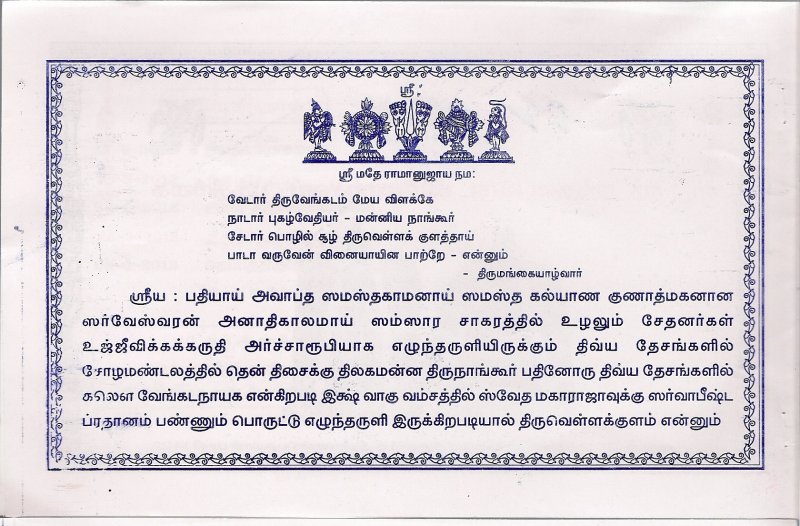 ஸ்ரீ:
ஸ்ரீ மதே ராமானுஜாய நம:
வேடார் திருவேங்கடம் மேய விளக்கே
நாடார் புகழ்வேதியர் – மன்னிய நாங்கூர்
சேடார் பொழில் சூழ் திருவெள்ளக் குளத்தாய்
பாடா வருவேன் வினையாயின பாற்றே – என்னும்
- திருமங்கையாழ்வார்
ஸ்ரீய : பதியாய் அவாப்த ஸமஸ்தகாமனாய் ஸமஸ்த கல்யாண குணாத்மகனான
ஸர்வேஸ்வரன் அனாதிகாலமாய் ஸம்ஸார சாகரத்தில் உழலும் சேதனர்கள்
உஜ்ஜீவிக்கக்கருதி அர்ச்சாரூபியாக எழுந்தருளியிருக்கும் திவ்ய தேசங்களில்
சோழமண்டலத்தில் தென் திசைக்கு திலகமன்ன திருநாங்கூர் பதினோரு திவ்ய தேசங்களில்
வேங்கடநாயக என்கிறபடி இக்ஷ் வாகு வம்சத்தில் ஸ்வேத மகாராஜாவுக்கு ஸர்வாபீஷ்ட
ப்ரதானம் பண்ணும் பொருட்டு எழுந்தருளி இருக்கிறபடியால் திருவெள்ளக்குளம் என்னும்